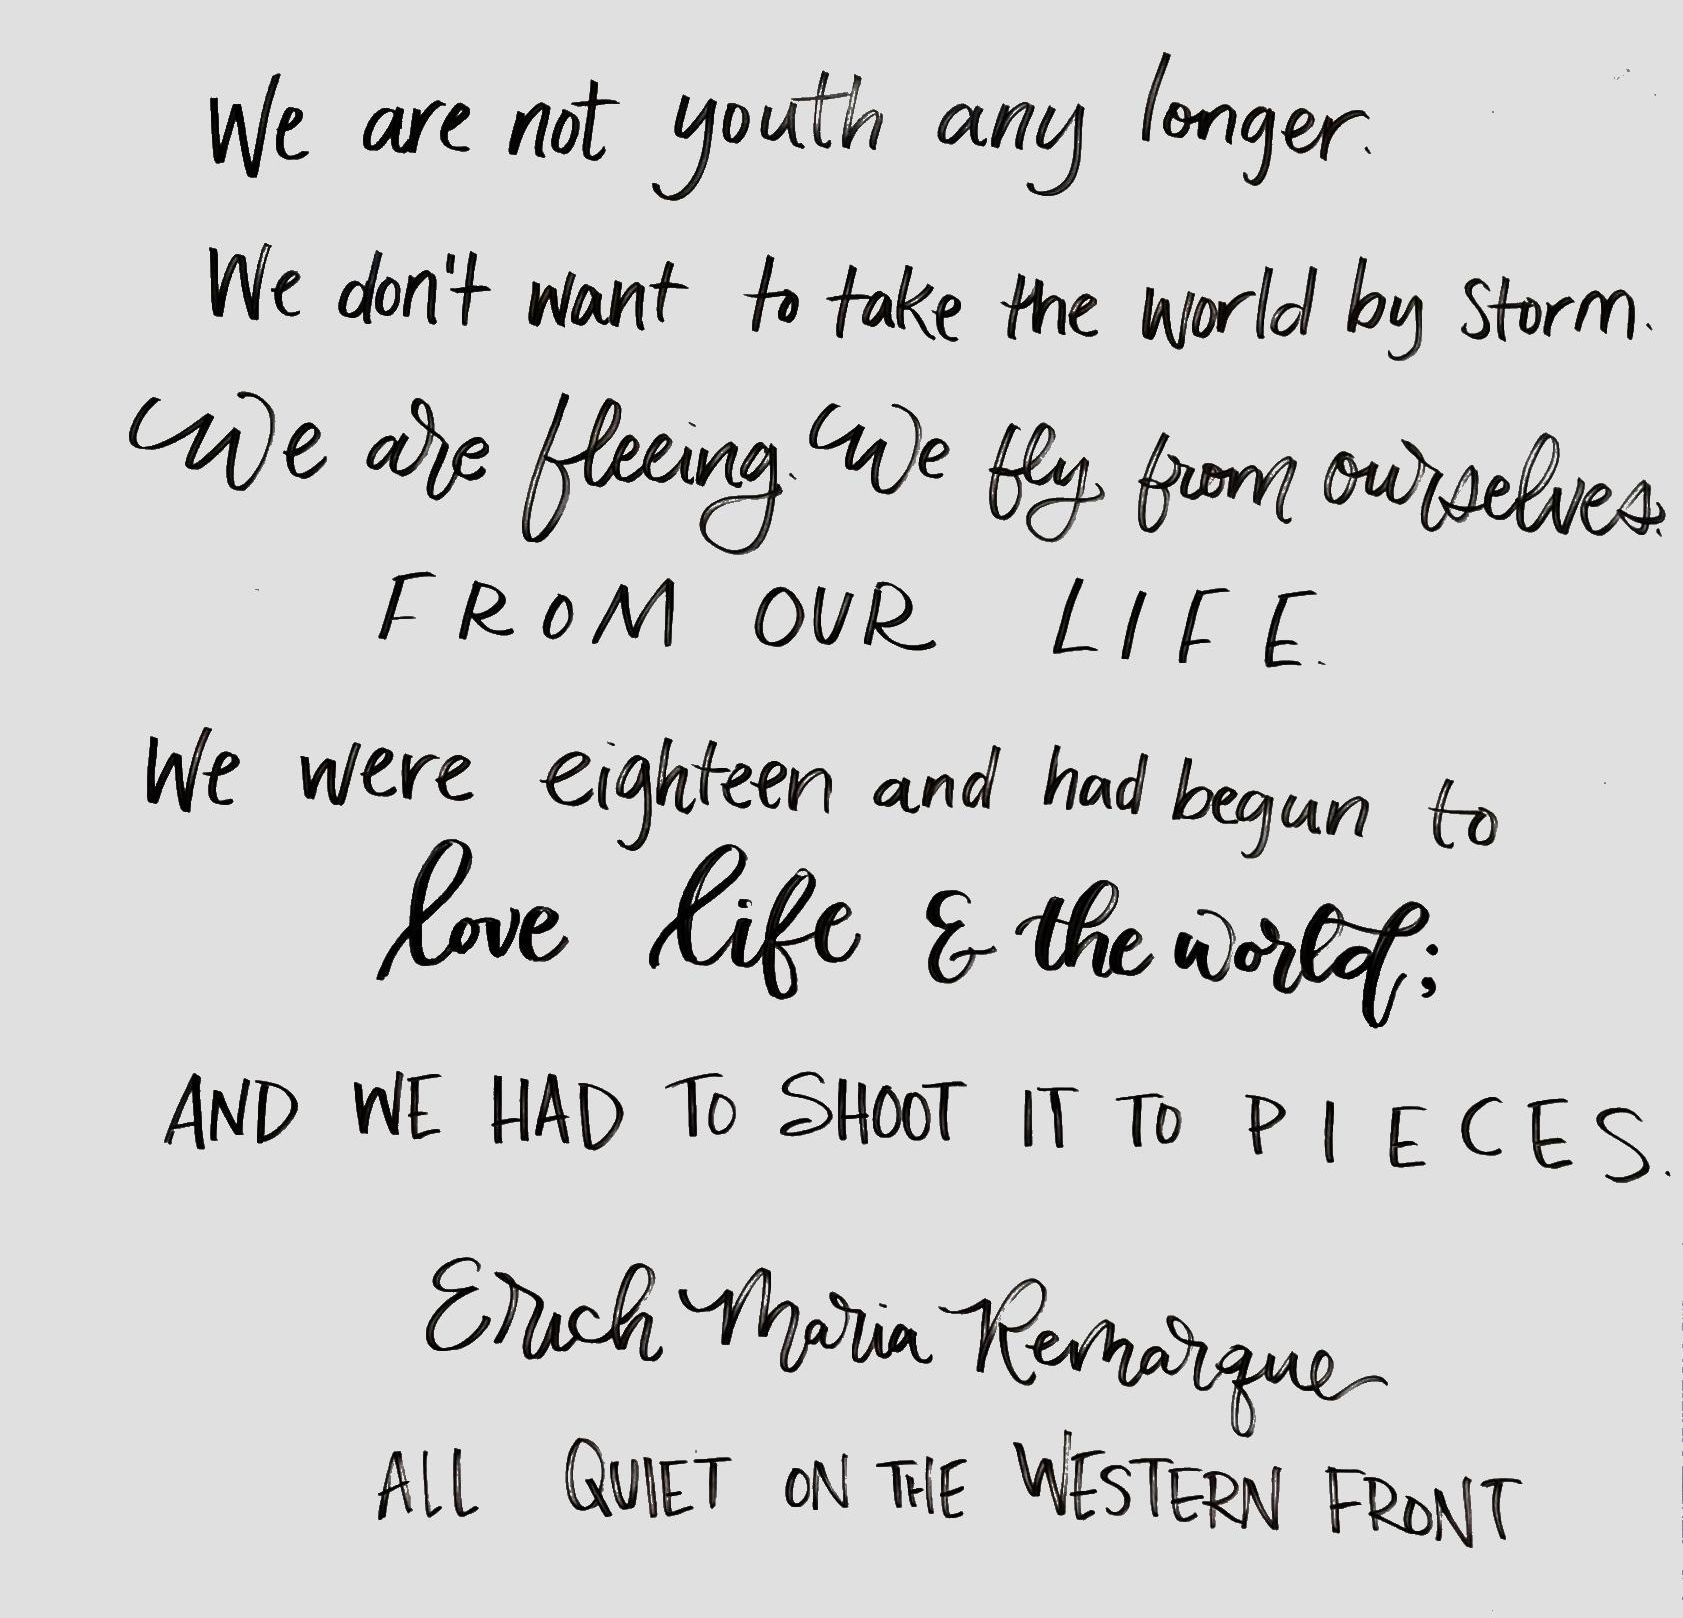 We are not youth any longer.
We don't want to take the world by storm.
We are fleeing. We fly from ourselves.
FROM OUR LIFE.
We were eighteen and had begun to
love life & the world;
AND WE HAD TO SHOOT IT TO PIECES.
Erich Maria Remarque
ALL QUIET ON THE WESTERN FRONT